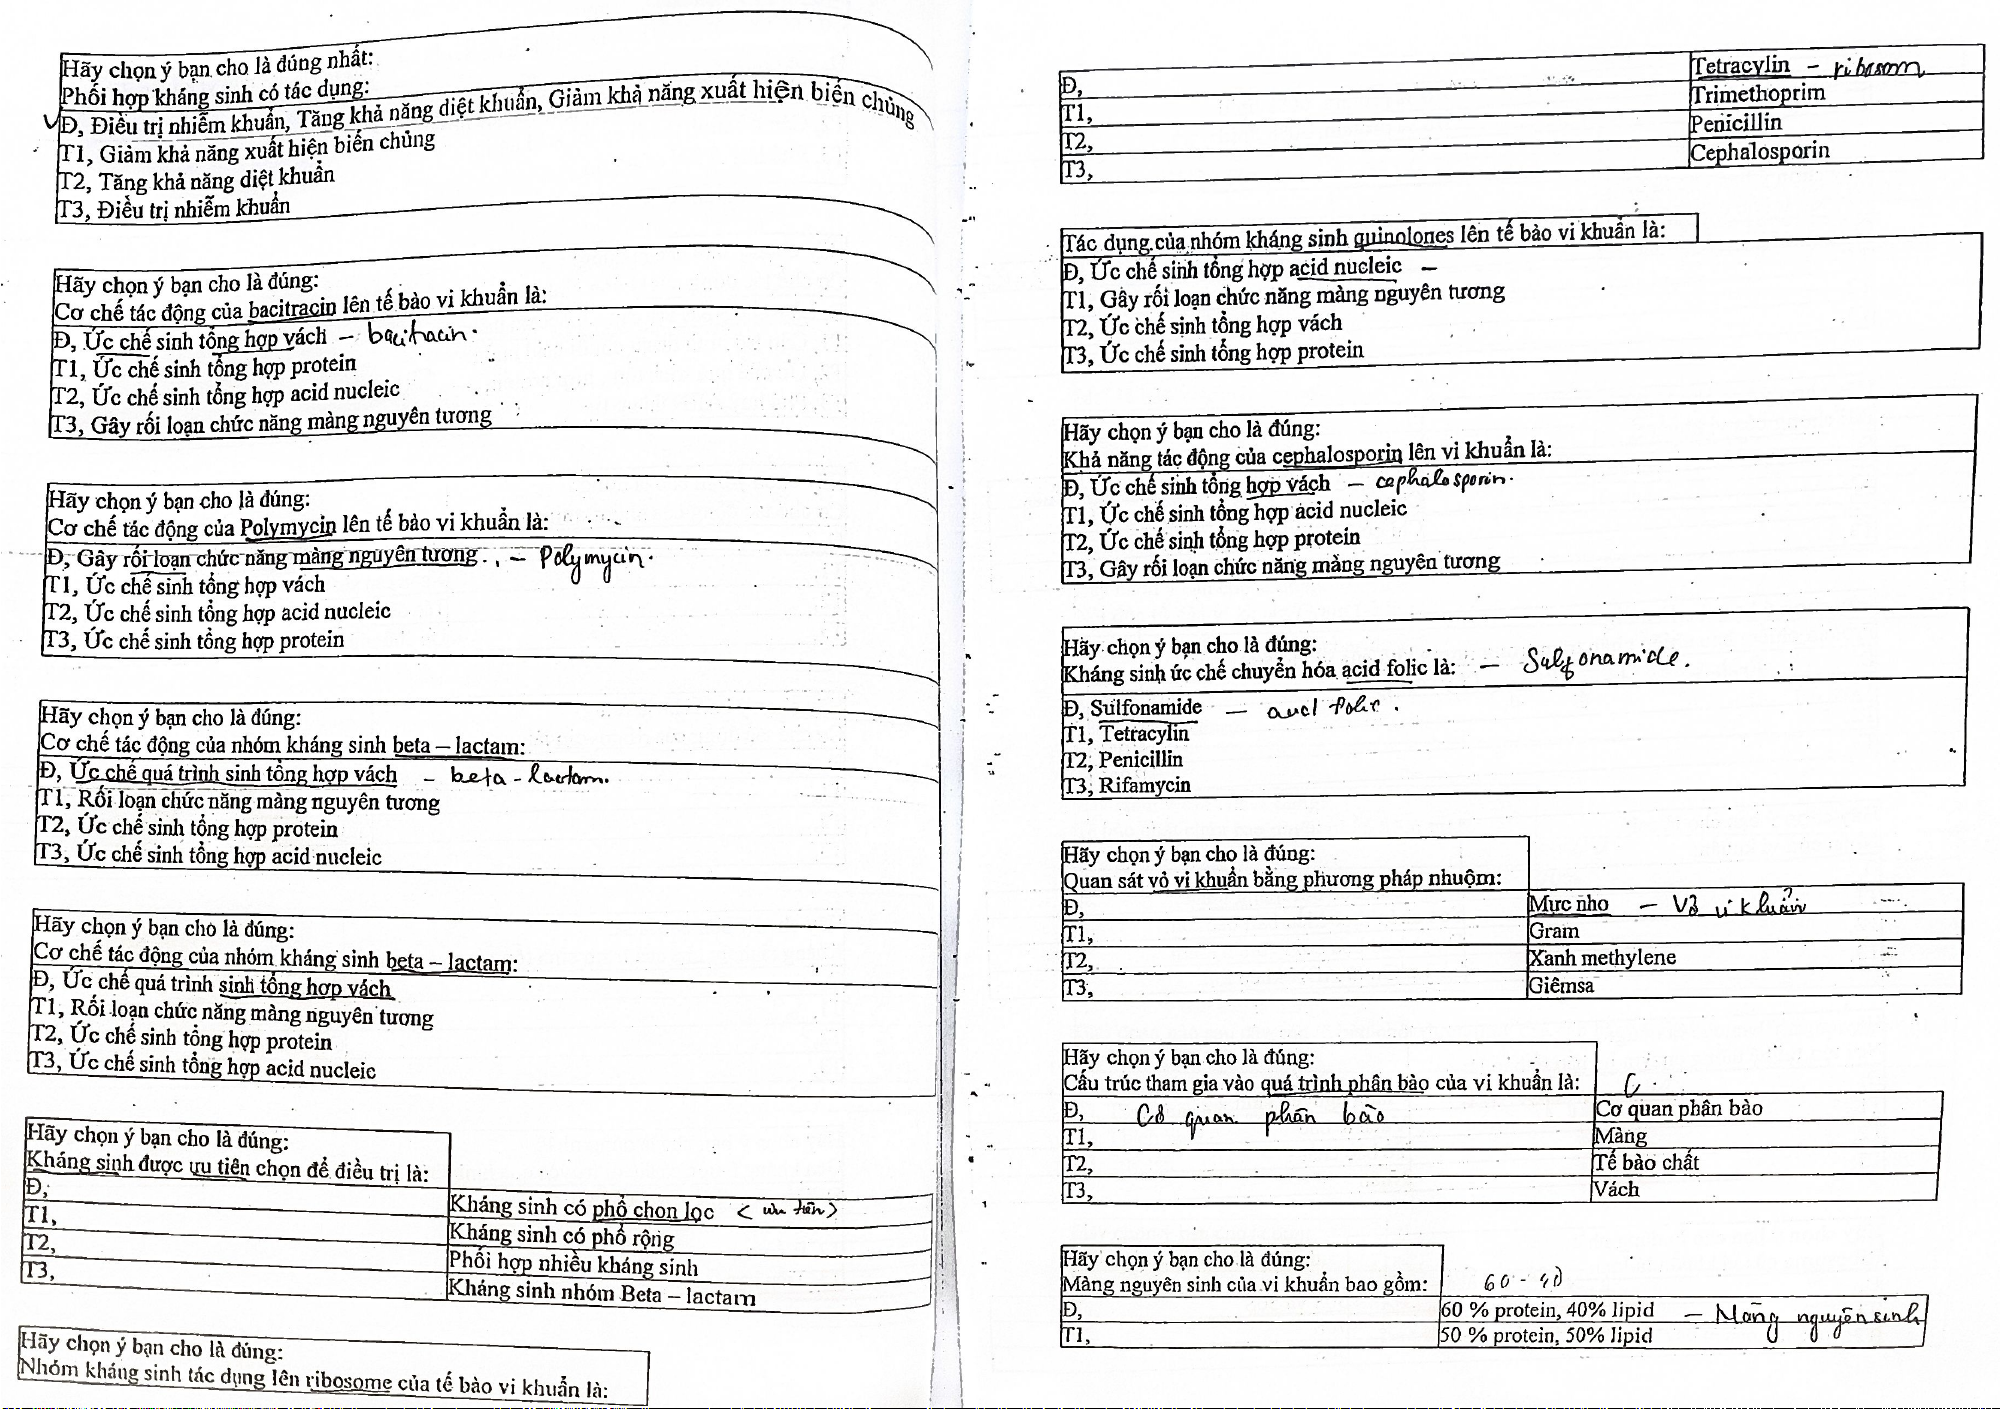 Hãy chọn ý bạn cho là đúng nhất:
Phối hợp kháng sinh có tác dụng:
Đ, Điều trị nhiễm khuẩn, Tăng khả năng diệt khuẩn, Giảm khả năng xuất hiện biến chủng
T1, Giảm khả năng xuất hiện biến chủng
T2, Tăng khả năng diệt khuẩn
T3, Điều trị nhiễm khuẩn
Hãy chọn ý bạn cho là đúng:
Cơ chế tác động của bacitracin lên tế bào vi khuẩn là:
Đ, Ức chế sinh tổng hợp vách – bacitracin.
T1, Ức chế sinh tổng hợp protein
T2, Ức chế sinh tổng hợp acid nucleic
T3, Gây rối loạn chức năng màng nguyên tương
Hãy chọn ý bạn cho là đúng:
Cơ chế tác động của Polymycin lên tế bào vi khuẩn là:
Đ, Gây rối loạn chức năng màng nguyên tương – Polymycin.
T1, Ức chế sinh tổng hợp vách
T2, Ức chế sinh tổng hợp acid nucleic
T3, Ức chế sinh tổng hợp protein
Hãy chọn ý bạn cho là đúng:
Cơ chế tác động của nhóm kháng sinh beta – lactam:
Đ, Ức chế quá trình sinh tổng hợp vách – beta - lactam.
T1, Rối loạn chức năng màng nguyên tương
T2, Ức chế sinh tổng hợp protein
T3, Ức chế sinh tổng hợp acid nucleic
Hãy chọn ý bạn cho là đúng:
Cơ chế tác động của nhóm kháng sinh beta – lactam:
Đ, Ức chế quá trình sinh tổng hợp vách
T1, Rối loạn chức năng màng nguyên tương
T2, Ức chế sinh tổng hợp protein
T3, Ức chế sinh tổng hợp acid nucleic
Hãy chọn ý bạn cho là đúng:
Kháng sinh được ưu tiên chọn để điều trị là:
Đ, Kháng sinh có phổ chọn lọc < ưu tiên >
T1, Kháng sinh có phổ rộng
T2, Phối hợp nhiều kháng sinh
T3, Kháng sinh nhóm Beta – lactam
Hãy chọn ý bạn cho là đúng:
Nhóm kháng sinh tác dụng lên ribosome của tế bào vi khuẩn là:
Đ, Tetracylin – ribosom
T1, Trimethoprim
T2, Penicillin
T3, Cephalosporin
Tác dụng của nhóm kháng sinh quinolones lên tế bào vi khuẩn là:
Đ, Ức chế sinh tổng hợp acid nucleic –
T1, Gây rối loạn chức năng màng nguyên tương
T2, Ức chế sinh tổng hợp vách
T3, Ức chế sinh tổng hợp protein
Hãy chọn ý bạn cho là đúng:
Khả năng tác động của cephalosporin lên vi khuẩn là:
Đ, Ức chế sinh tổng hợp vách – cephalosporin.
T1, Ức chế sinh tổng hợp acid nucleic
T2, Ức chế sinh tổng hợp protein
T3, Gây rối loạn chức năng màng nguyên tương
Hãy chọn ý bạn cho là đúng:
Kháng sinh ức chế chuyển hóa acid folic là: – Sulfonamide.
Đ, Sulfonamide – acid folic.
T1, Tetracylin
T2, Penicillin
T3, Rifamycin
Hãy chọn ý bạn cho là đúng:
Quan sát vỏ vi khuẩn bằng phương pháp nhuộm:
Đ, Mực nho – Vỏ vi khuẩn
T1, Gram
T2, Xanh methylene
T3, Giêmsa
Hãy chọn ý bạn cho là đúng:
Cấu trúc tham gia vào quá trình phân bào của vi khuẩn là: C.
Đ, Cơ quan phân bào Cơ quan phân bào
T1, Màng
T2, Tế bào chất
T3, Vách
Hãy chọn ý bạn cho là đúng:
Màng nguyên sinh của vi khuẩn bao gồm: 60 - 40
Đ, 60 % protein, 40% lipid – Màng nguyên sinh
T1, 50 % protein, 50% lipid